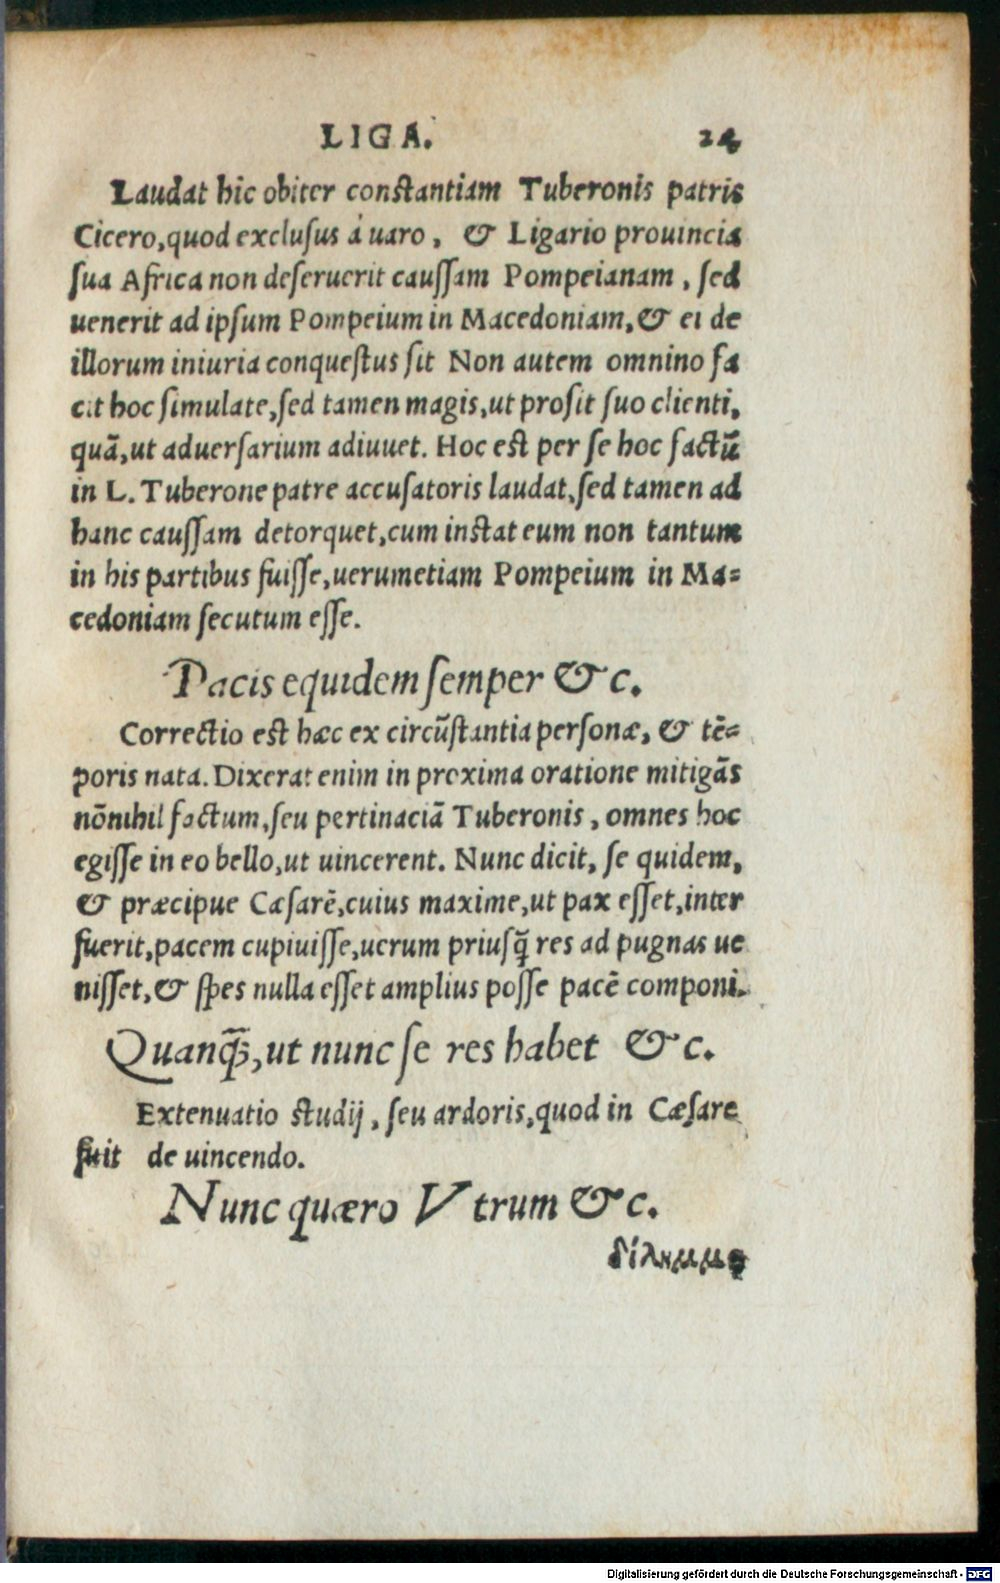 LIGA. 24
Laudat hic obiter constantiam Tuberonis patris
Cicero, quod exclusus á uaro, & Ligario prouincia
sua Africa non deseruerit caussam Pompeianam, sed
uenerit ad ipsum Pompeium in Macedoniam, & ei de
illorum iniuria conquestus sit Non autem omnino fa
cit hoc simulate, sed tamen magis, ut prosit suo clienti,
quã, ut aduersarium adiuuet. Hoc est per se hoc factũ
in L. Tuberone patre accusatoris laudat, sed tamen ad
hanc caussam detorquet, cum instat eum non tantum
in his partibus fuisse, uerumetiam Pompeium in Ma=
cedoniam secutum esse.
Pacis equidem semper &c.
Correctio est hæc ex circũstantia personæ, & tẽ=
poris nata. Dixerat enim in proxima oratione mitigãs
nõnihil factum, seu pertinaciã Tuberonis, omnes hoc
egisse in eo bello, ut uincerent. Nunc dicit, se quidem,
& præcipue Cæsarẽ, cuius maxime, ut pax esset, inter
fuerit, pacem cupiuisse, uerum priusq̃ res ad pugnas ue
nisset, & spes nulla esset amplius posse pacẽ componi.
Quanq̃, ut nunc se res habet &c.
Extenuatio studij, seu ardoris, quod in Cæsare
fuit de uincendo.
Nunc quæro Vtrum &c.
δίλημμα
Digitalisierung gefördert durch die Deutsche Forschungsgemeinschaft - DFG